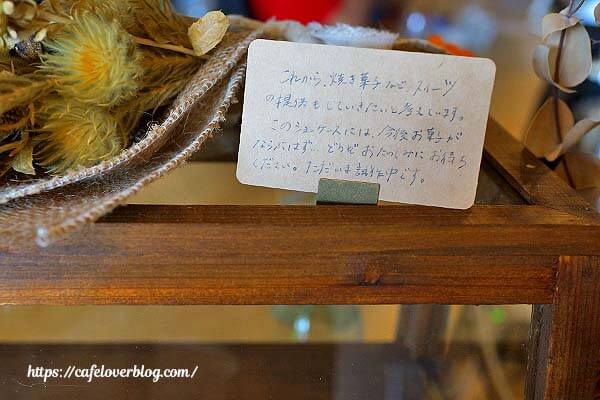 これから、焼き菓子など、スイーツ
の提供もしていきたいと考えています。
このショーケースには、今後お菓子が
ならぶはず… どうぞおたのしみにお待ち
ください。ただいま試作中です。
https://cafeloverblog.com/